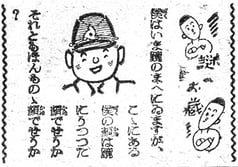 僕はいま鏡のまへにゐますが、
こゝにある
僕の顔は鏡
にうつつた
顔でせうか
それともほんものゝ
顔でせうか
?